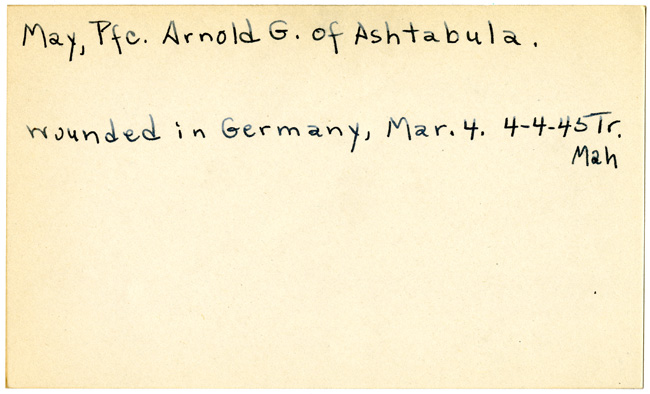 May, Pfc. Arnold G. of Ashtabula.
wounded in Germany, Mar. 4. 4-4-45 Tr.
Mah